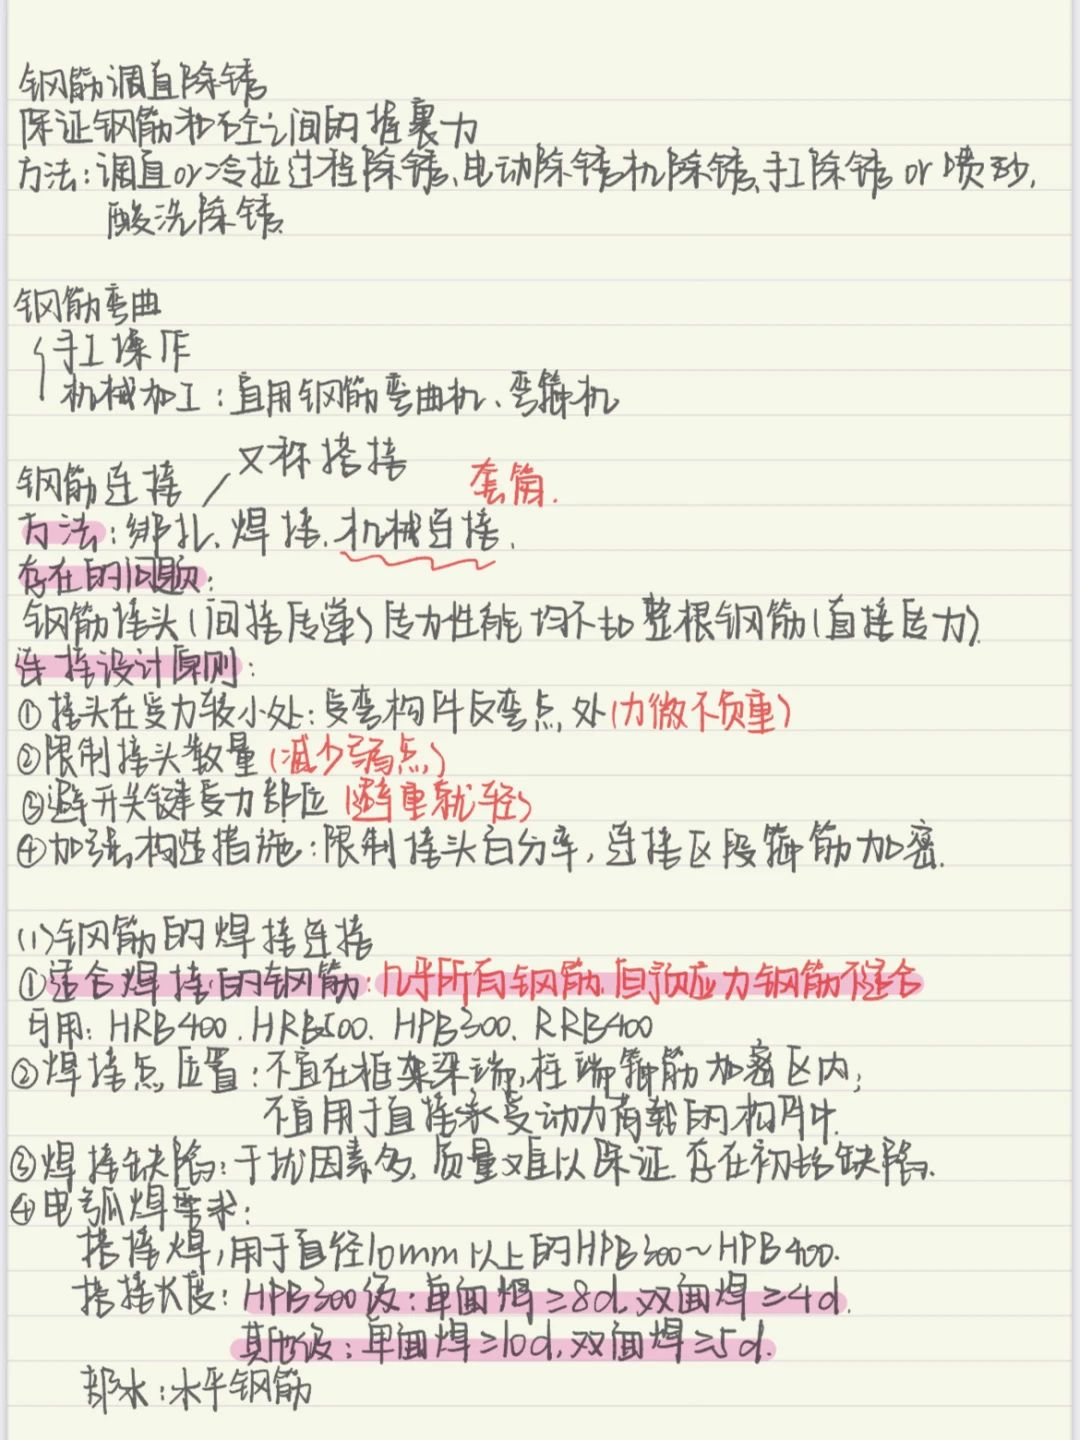 钢筋调直除锈
保证钢筋和砼之间的握裹力
方法:调直or冷拉过程除锈、电动除锈机除锈、手工除锈 or 喷砂,
酸洗除锈.
钢筋弯曲
手工操作
机械加工:宜用钢筋弯曲机、弯箍机
又称搭接
钢筋连接
套筒.
方法:绑扎、焊接、机械连接.
存在的问题:
钢筋接头(间接传递)传力性能均不如整根钢筋(直接传力).
连接设计原则:
①接头在受力较小处:受弯构件反弯点处(力微不负重)
②限制接头数量(减少弱点)
③避开关键受力部位(避重就轻)
④加强构造措施:限制接头百分率,连接区段箍筋加密.
(1)钢筋的焊接连接
①适合焊接的钢筋:几乎所有钢筋.但预应力钢筋不适合
可用:HRB400.HRB500.HPB300.RRB400
②焊接点位置:不宜在框架梁端,柱端箍筋加密区内;
不宜用于直接承受动力荷载的构件中.
③焊接缺陷:干扰因素多,质量难以保证.存在初始缺陷.
④电弧焊要求:
搭接焊,用于直径10mm以上的HPB300~HPB400.
搭接长度:HPB300级:单面焊≥8d,双面焊≥4d.
其他级:单面焊≥10d,双面焊≥5d.
部水:水平钢筋